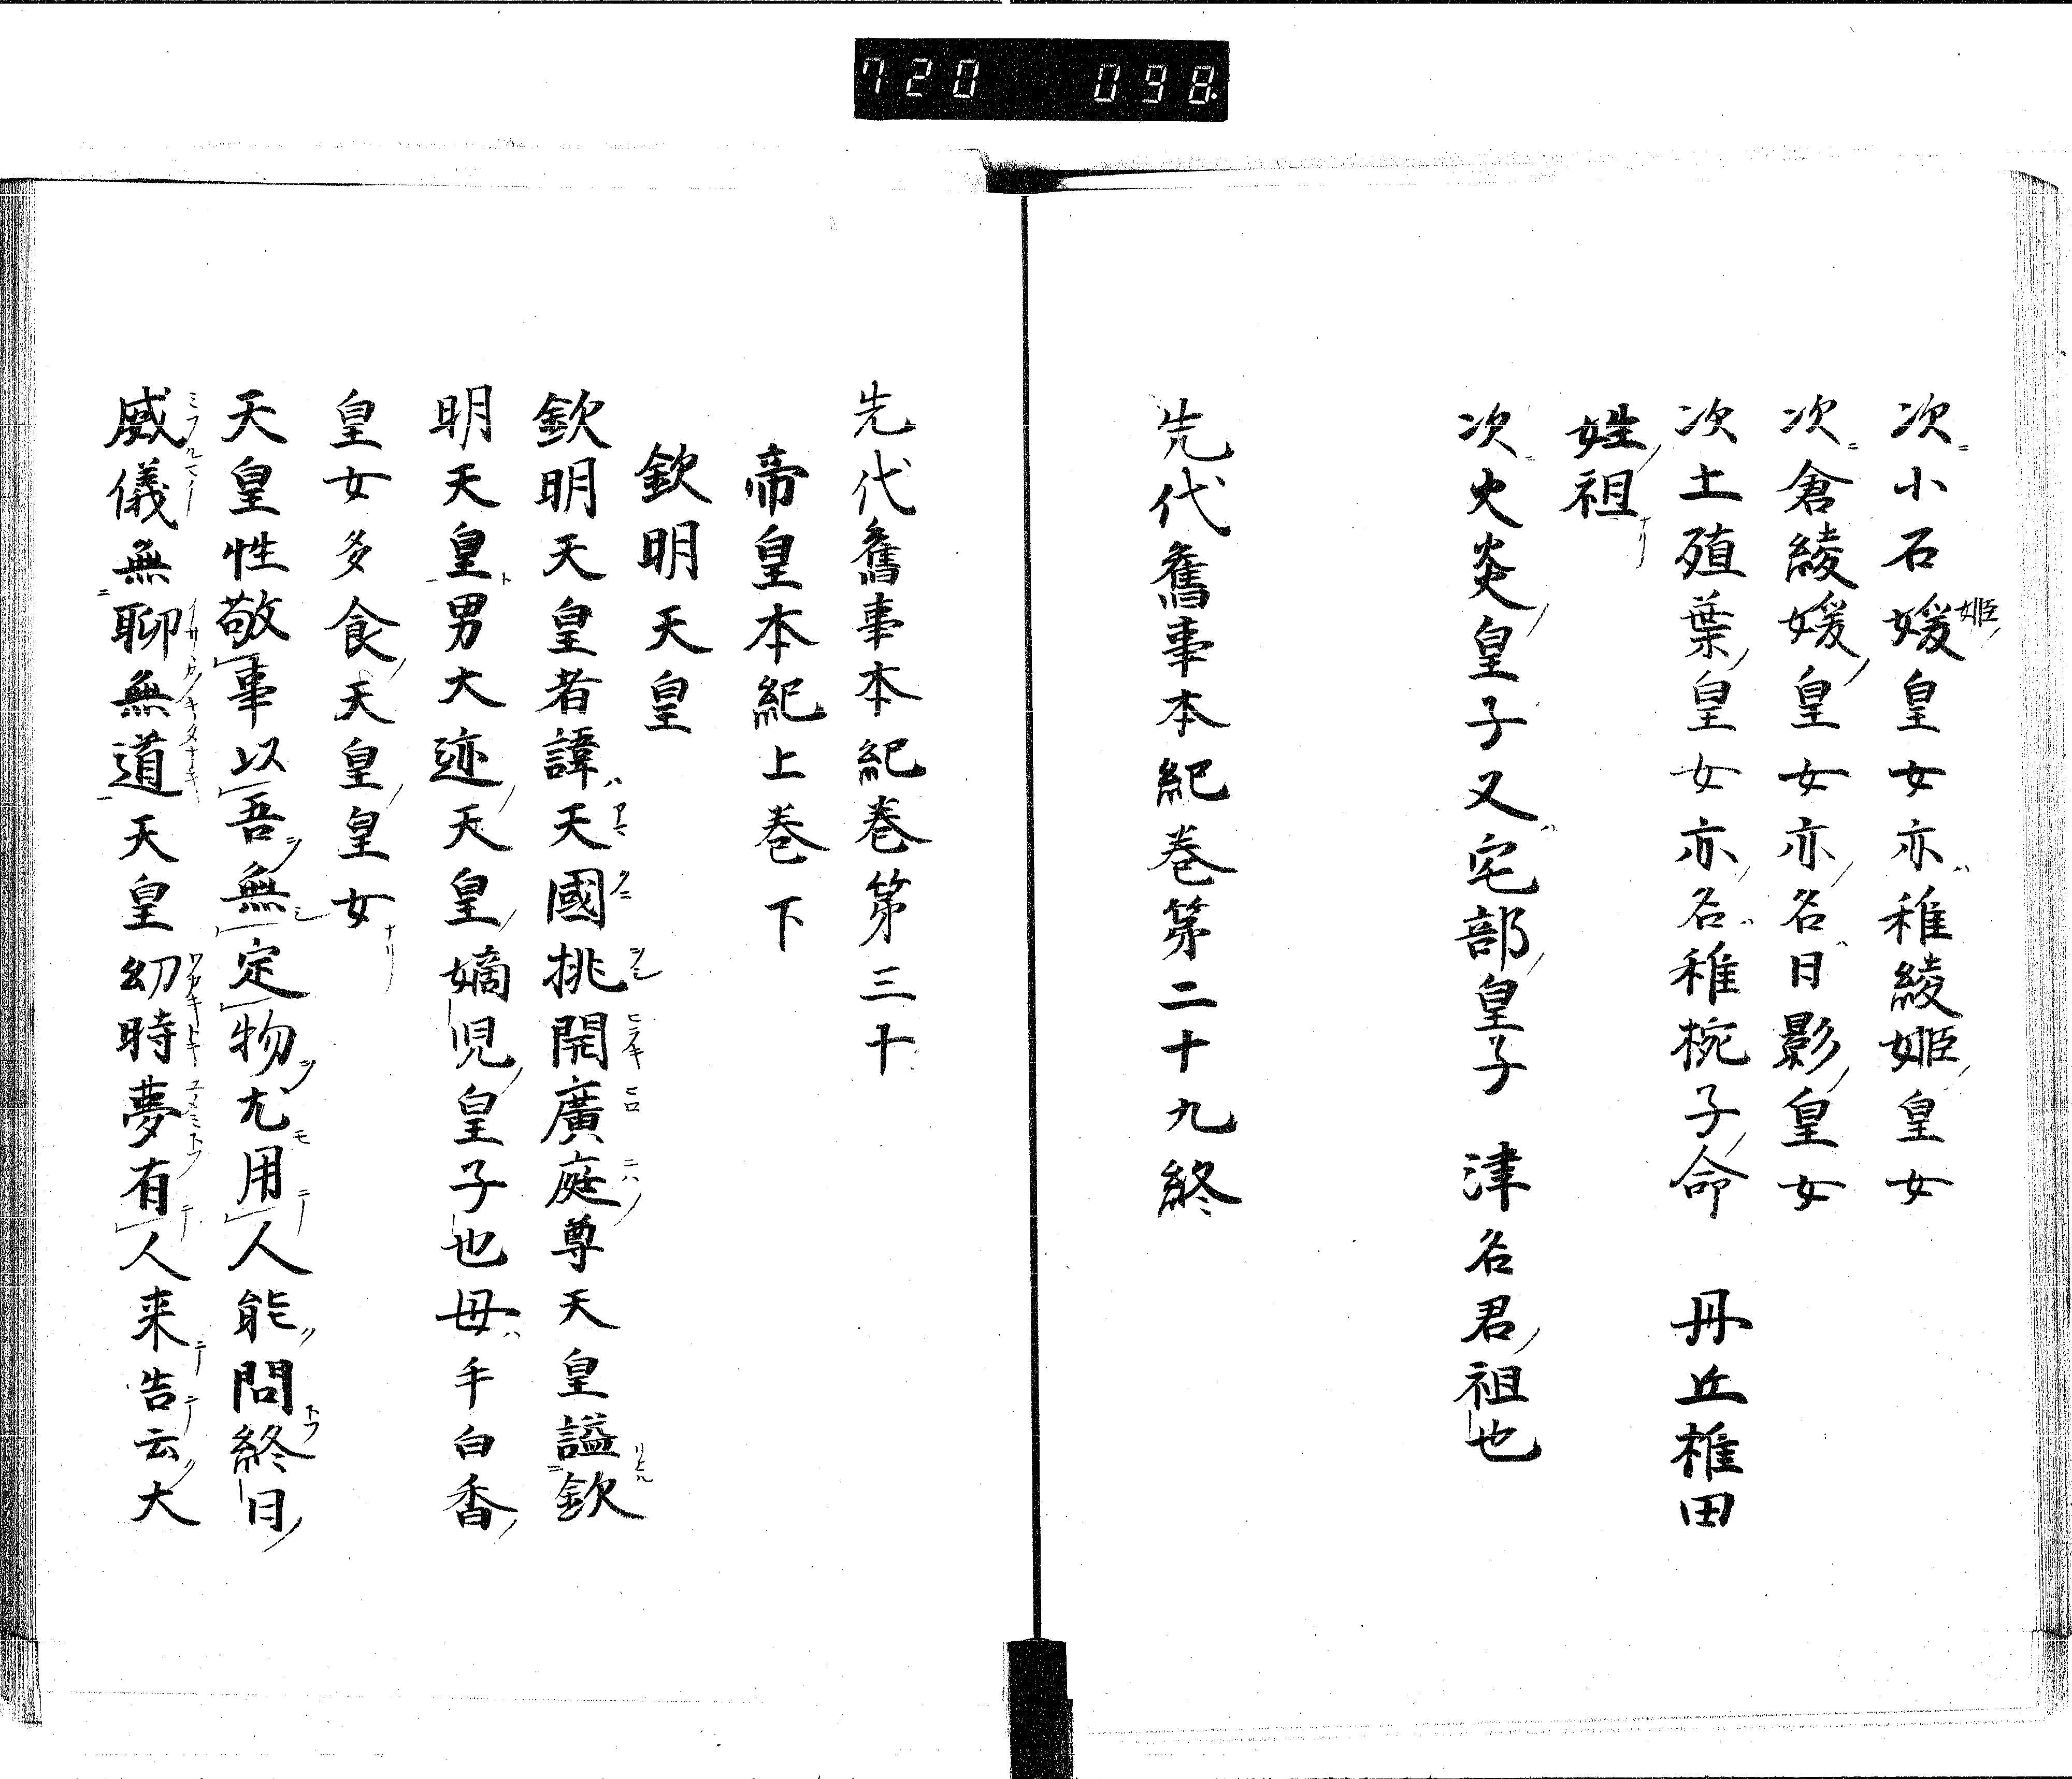 720 098
次小石媛皇女亦稚綾姫皇女
次倉綾媛皇女亦名日影皇女
次土殖葉皇女亦名稚椀子命 丹丘椎田
姓祖
次火炎皇子又宅部皇子 津名君祖也
先代舊事本紀巻第二十九終
先代舊事本紀巻第三十
帝皇本紀上巻下
欽明天皇
欽明天皇者諱天國挑開廣庭尊天皇謚欽
明天皇男大迹天皇嫡児皇子也毋手白香
皇女多食天皇皇女
天皇性敬事以吾無定物尤用人能問終日
威儀無聊無道天皇幼時夢有人来告云大